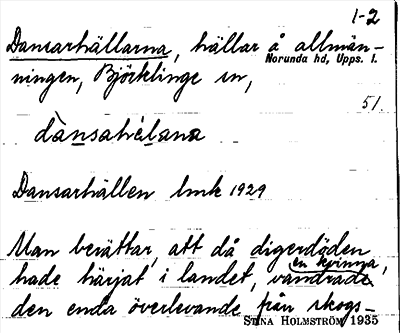 1-2
Dansarhällarna, hällar å allmän-
Norunda hd, Upps. l.
ningen, Björklinge sn,
51.
dànsahèlana
Dansarhällen lmk 1929
Man berättar, att då digerdöden
en kvinna,
hade härjat i landet, vandrade
den enda överlevande från skogs-
STINA HOLMSTRÖM 1935